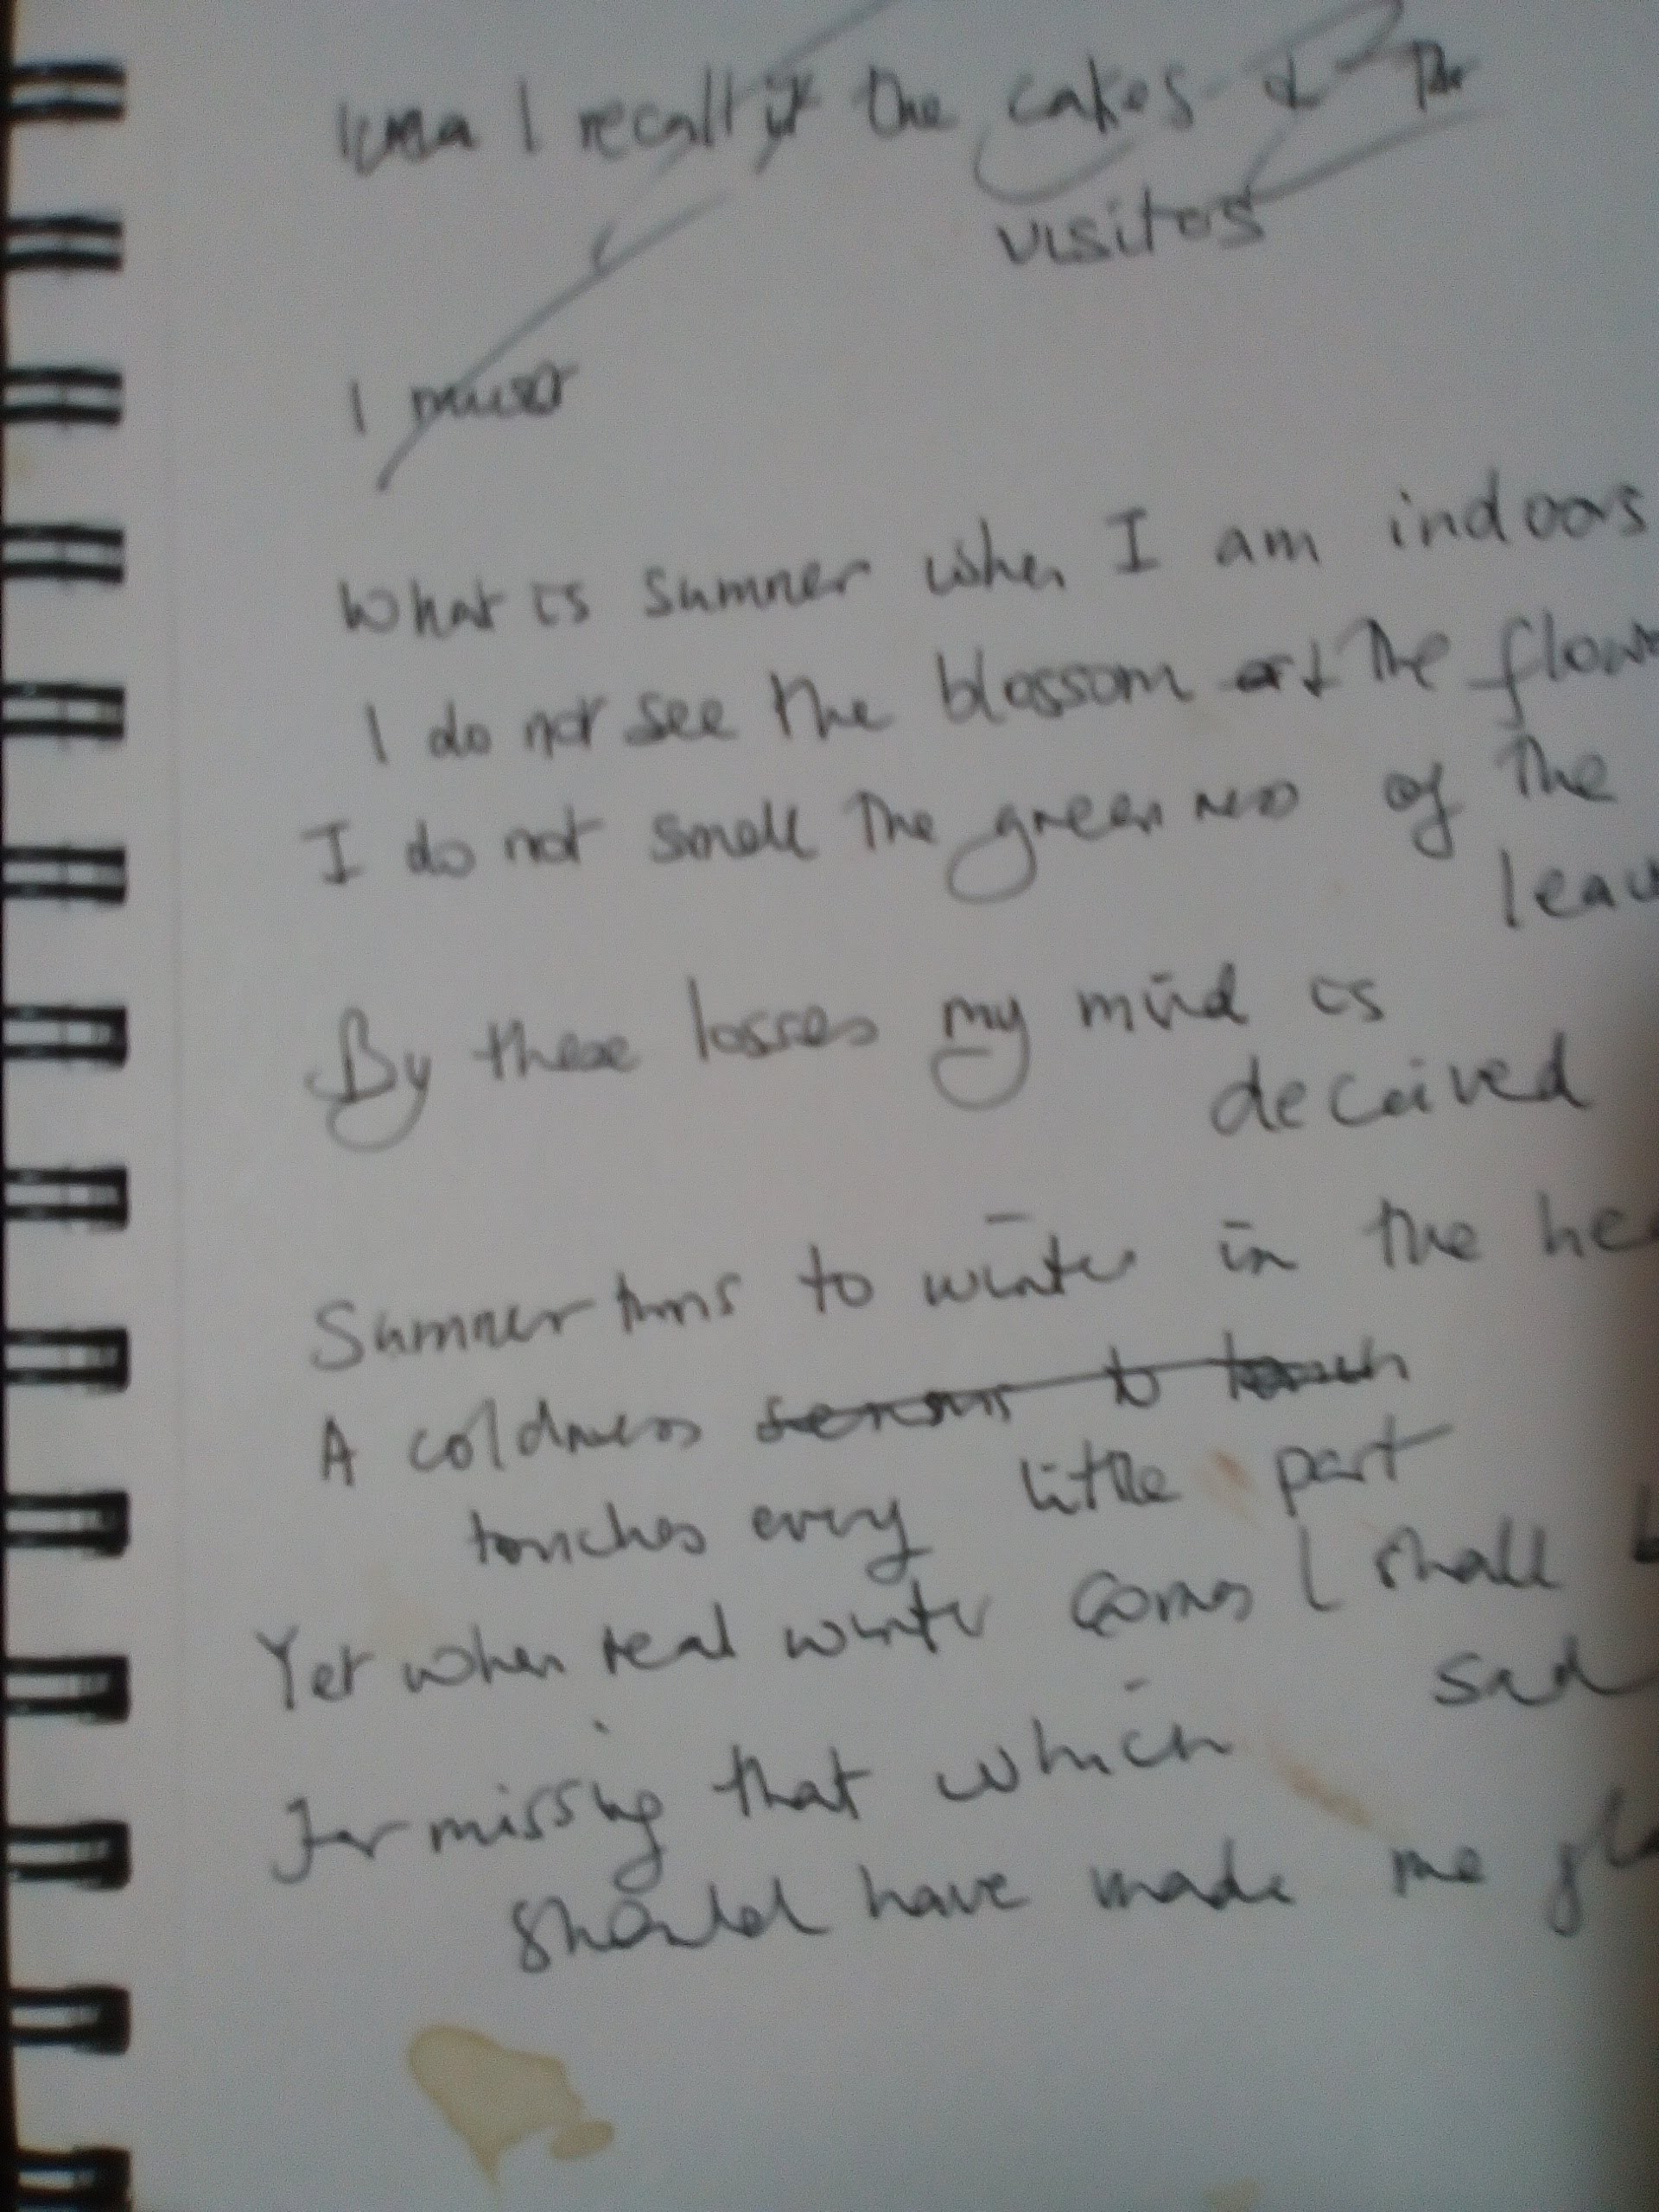 I recall the cakes & the
visitors
I must
What is summer when I am indoors
I do not see the blossom or the flow
I do not smell the greenness of the
leav
By these losses my mind is
deceived
Summer turns to winter in the he
A coldness seems to touch
touches every little part
Yet when real winter comes I shall b
sad
For missing that which
should have made me gl